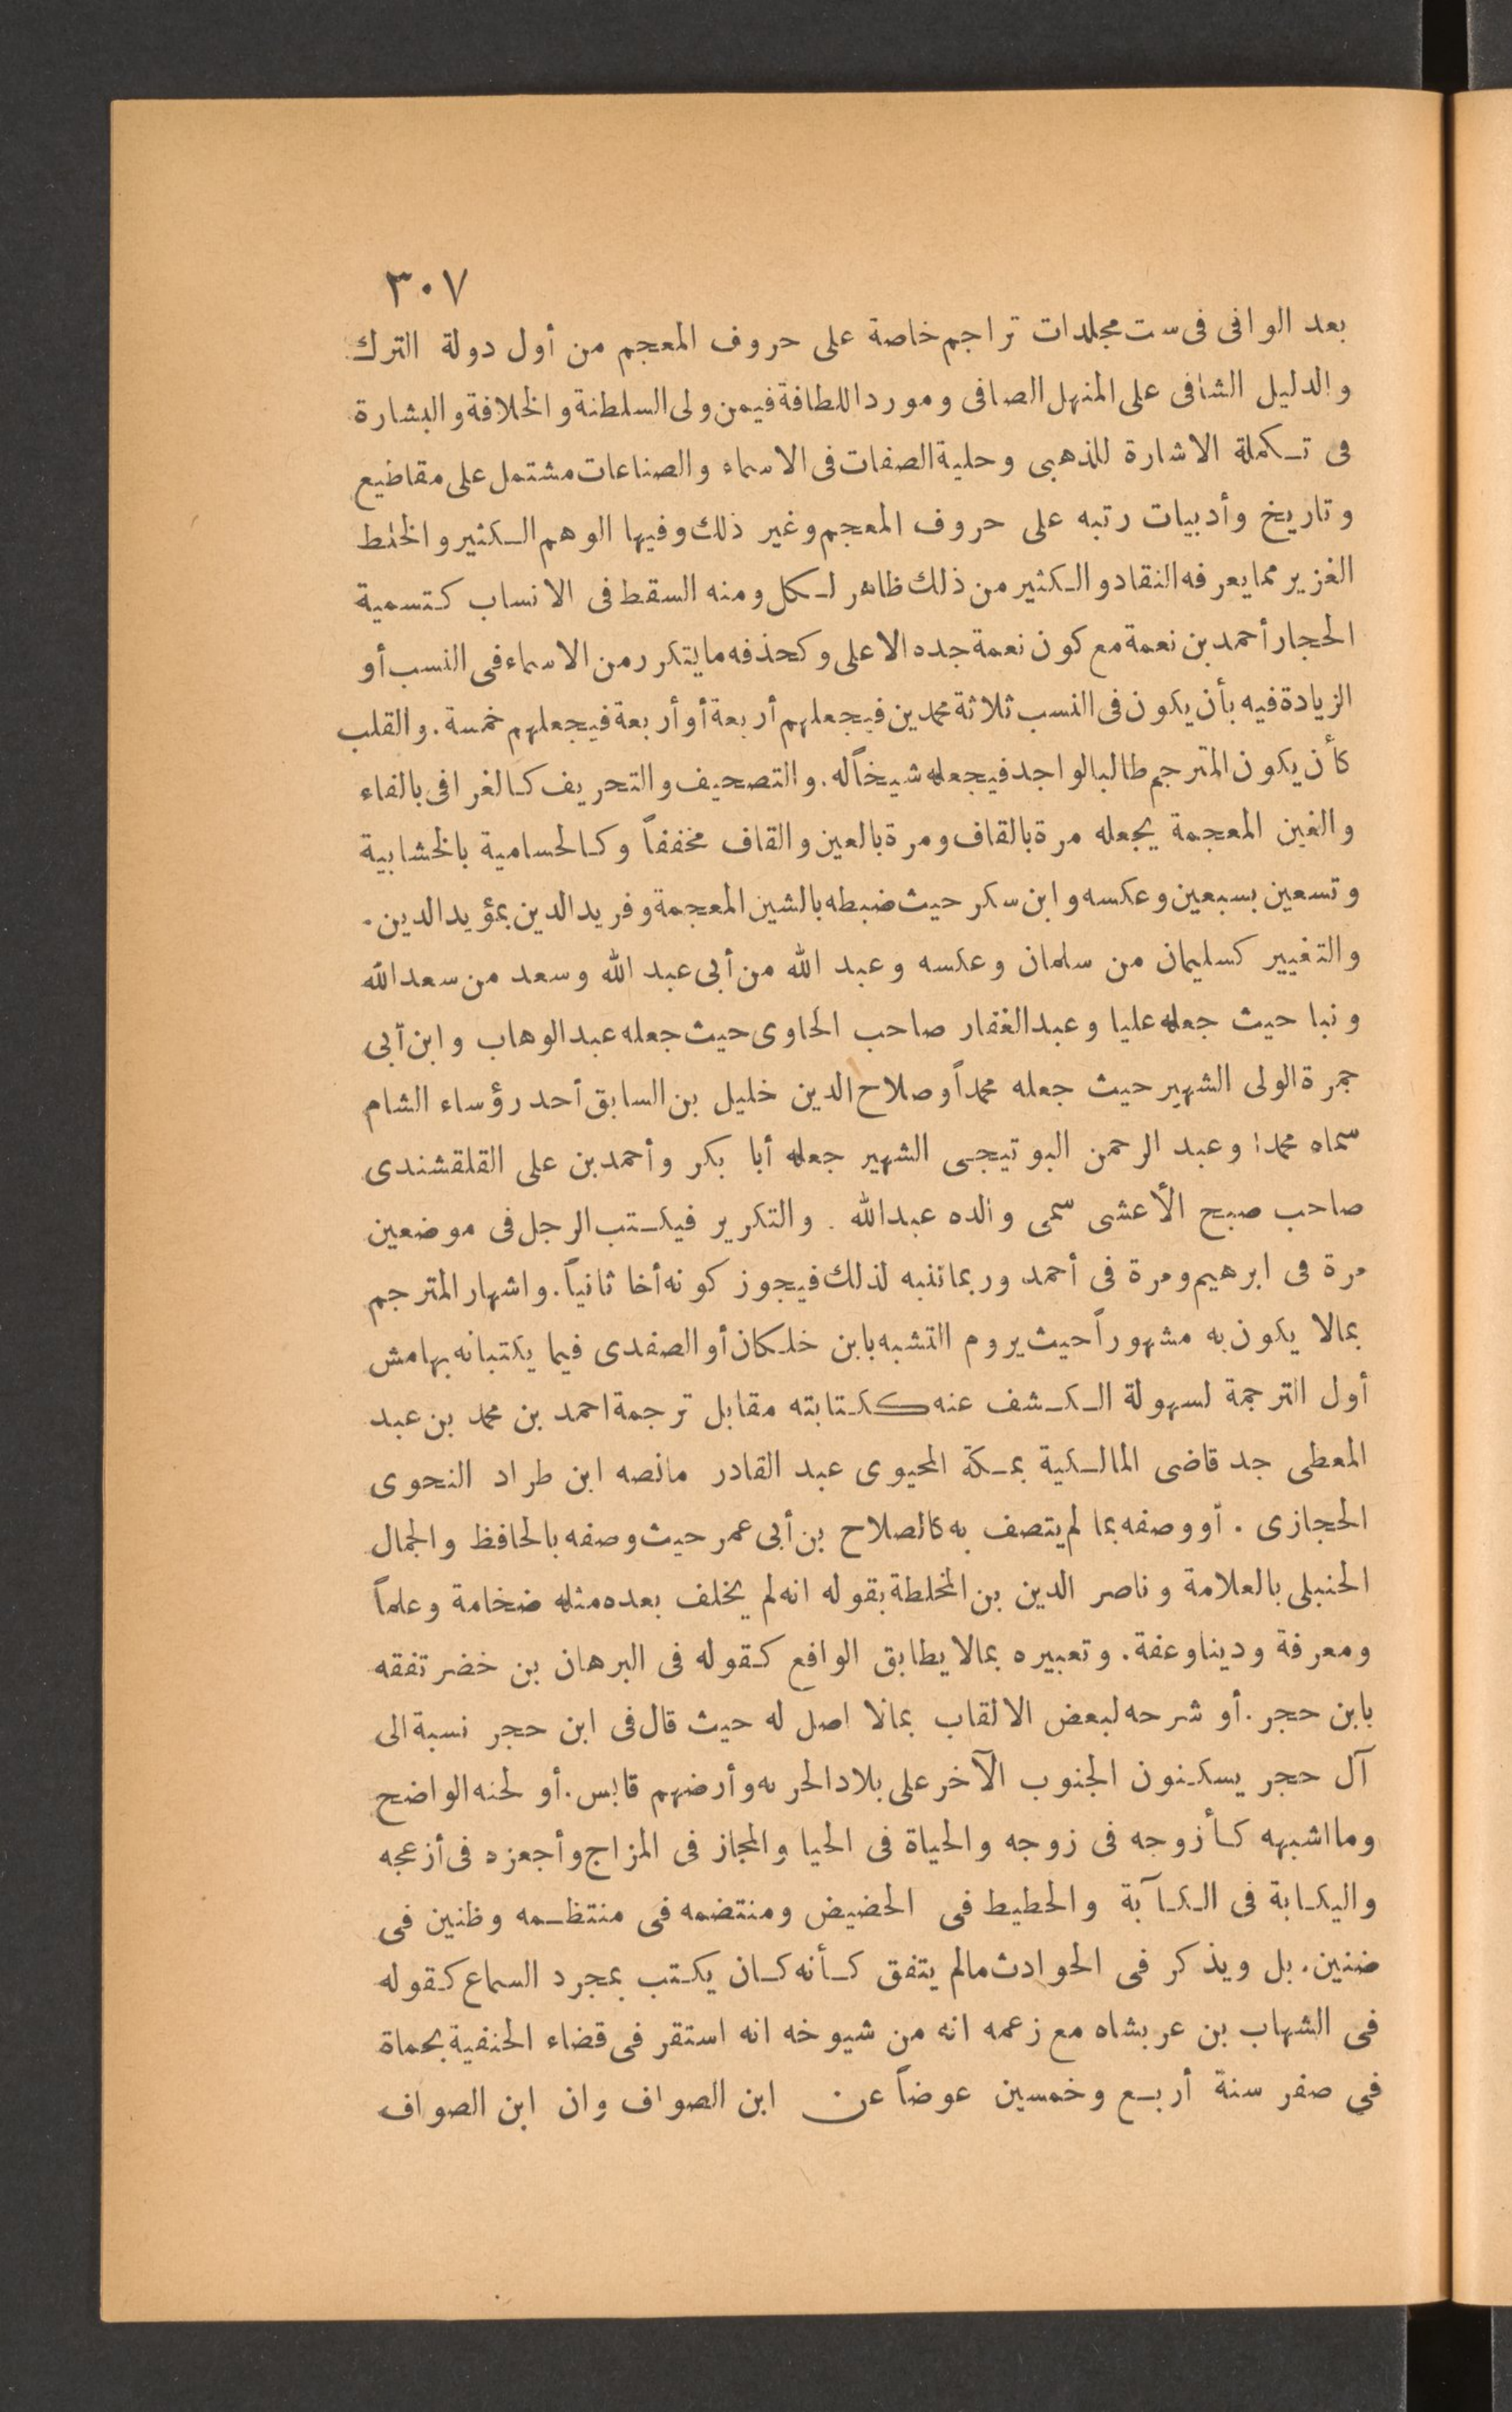 ٣٠٧
بعد الوافى فى ست مجلدات تراجم خاصة على حروف المعجم من أول دولة الترك
والدليل الشافى على المنهل الصافى ومورد اللطافة فيمن ولى السلطنة والخلافة والبشارة
فى تكملة الاشارة للذهبى وحلية الصفات فى الاسماء والصناعات مشتمل على مقاطيع
وتاريخ وأدبيات رتبه على حروف المعجم وغير ذلك وفيها الوهم الكثير والخلط
الغزير مما يعرفه النقاد والكثير من ذلك ظاهر لكل ومنه السقط فى الانساب كتسمية
الحجار أحمد بن نعمة مع كون نعمة جده الاعلى وكحذفه ما يتكرر من الاسماء فى النسب أو
الزيادة فيه بأن يكون فى النسب ثلاثة محمدين فيجعلهم أربعة أو أربعة فيجعلهم خمسة. والقلب
كأن يكون المترجم طالبا لواحد فيجعله شيخاً له. والتصحيف والتحريف كالغرافى بالفاء
والغين المعجمة يجعله مرة بالقاف ومرة بالعين والقاف مخففاً وكالحسامية بالخشابية
وتسعين بسبعين وعكسه وابن سكر حيث ضبطه بالشين المعجمة وفريد الدين بمؤيد الدين.
والتغيير كسليمان من سلمان وعكسه وعبد الله من أبى عبد الله وسعد من سعد الله
ونبا حيث جعله عليا وعبد الغفار صاحب الحاوى حيث جعله عبد الوهاب وابن أبى
جمرة الولى الشهير حيث جعله محمداً وصلاح الدين خليل بن السابق أحد رؤساء الشام
سماه محمدا وعبد الرحمن البوتيجى الشهير جعله أبا بكر وأحمد بن على القلقشندى
صاحب صبح الأعشى سمى والده عبد الله. والتكرير فيكتب الرجل فى موضعين
مرة فى ابرهيم ومرة فى أحمد وربما تنبه لذلك فيجوز كونه أخا ثانياً. واشهار المترجم
بمالا يكون به مشهوراً حيث يروم التشبه بابن خلكان أو الصفدى فيما يكتبانه بهامش
أول الترجمة لسهولة الكشف عنه ككتابته مقابل ترجمة احمد بن محمد بن عبد
المعطى جد قاضى المالكية بمكة المحيوى عبد القادر مانصه ابن طراد النحوى
الحجازى. أو وصفه بما لم يتصف به كالصلاح بن أبى عمر حيث وصفه بالحافظ والجمال
الحنبلى بالعلامة وناصر الدين بن المخلطة بقوله انه لم يخلف بعده مثله ضخامة وعلماً
ومعرفة ودينا وعفة. وتعبيره بمالا يطابق الواقع كقوله فى البرهان بن خضر تفقه
بابن حجر. أو شرحه لبعض الالقاب بمالا اصل له حيث قال فى ابن حجر نسبة الى
آل حجر يسكنون الجنوب الآخر على بلاد الحربه وأرضهم قابس. أو لحنه الواضح
وما اشبهه كأزوجه فى زوجه والحياة فى الحيا والمجاز فى المزاج وأجعزه فى أزعجه
واليكابة فى الكآبة والحطيط فى الحضيض ومنتضمه فى منتظمه وظنين فى
ضنين. بل ويذكر فى الحوادث مالم يتفق كأنه كان يكتب بمجرد السماع كقوله
فى الشهاب بن عربشاه مع زعمه انه من شيوخه انه استقر فى قضاء الحنفية بحماة
فى صفر سنة أربع وخمسين عوضاً عن ابن الصواف وان ابن الصواف